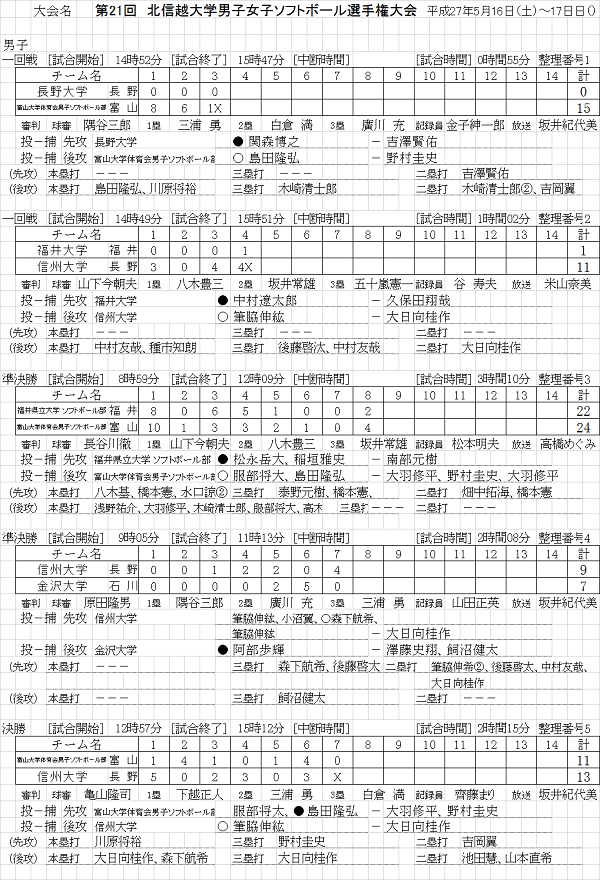 大会名 第21回 北信越大学男子女子ソフトボール選手権大会 平成27年5月16日(土)～17日日()
男子
一回戦 [試合開始] 14時52分 [試合終了] 15時47分 [中断時間] [試合時間] 0時間55分 整理番号1
チーム名 1 2 3 4 5 6 7 8 9 10 11 12 13 14 計
長野大学 長野 0 0 0 0
富山大学体育会男子ソフトボール部 富山 8 6 1X 15
審判 球審 隅谷三郎 1塁 三浦 勇 2塁 白倉 満 3塁 廣川 充 記録員 金子紳一郎 放送 坂井紀代美
投－捕 先攻 長野大学 ● 関森博之 － 吉澤賢佑
投－捕 後攻 富山大学体育会男子ソフトボール部 ○ 島田隆弘 － 野村圭史
(先攻) 本塁打 －－－ 三塁打 －－－ 二塁打 吉澤賢佑
(後攻) 本塁打 島田隆弘、川原将裕 三塁打 木崎清士郎 二塁打 木崎清士郎②、吉岡翼
一回戦 [試合開始] 14時49分 [試合終了] 15時51分 [中断時間] [試合時間] 1時間02分 整理番号2
チーム名 1 2 3 4 5 6 7 8 9 10 11 12 13 14 計
福井大学 福井 0 0 0 1 1
信州大学 長野 3 0 4 4X 11
審判 球審 山下今朝夫 1塁 八木豊三 2塁 坂井常雄 3塁 五十嵐憲一 記録員 谷 寿夫 放送 米山奈美
投－捕 先攻 福井大学 ● 中村遼太郎 － 久保田翔哉
投－捕 後攻 信州大学 ○ 筆脇伸紘 － 大日向桂作
(先攻) 本塁打 －－－ 三塁打 －－－ 二塁打 －－－
(後攻) 本塁打 中村友哉、種市知朗 三塁打 後藤啓汰、中村友哉 二塁打 大日向桂作
準決勝 [試合開始] 8時59分 [試合終了] 12時09分 [中断時間] [試合時間] 3時間10分 整理番号3
チーム名 1 2 3 4 5 6 7 8 9 10 11 12 13 14 計
福井県立大学 ソフトボール部 福井 8 0 6 5 1 0 0 2 22
富山大学体育会男子ソフトボール部 富山 10 1 3 3 2 1 0 4 24
審判 球審 長谷川徹 1塁 山下今朝夫 2塁 八木豊三 3塁 坂井常雄 記録員 松本明夫 放送 高橋めぐみ
投－捕 先攻 福井県立大学 ソフトボール部 ● 松永岳大、稲垣雅史 － 南部元樹
投－捕 後攻 富山大学体育会男子ソフトボール部 ○ 服部将大、島田隆弘 － 大羽修平、野村圭史、大羽修平
(先攻) 本塁打 八木基、橋本憲、水口諒② 三塁打 泰野元樹、橋本憲、 二塁打 畑中拓海、橋本憲
(後攻) 本塁打 浅野祐介、大羽修平、木崎清士郎、服部将大、高木 三塁打 －－－ 二塁打 －－－
準決勝 [試合開始] 9時05分 [試合終了] 11時13分 [中断時間] [試合時間] 2時間08分 整理番号4
チーム名 1 2 3 4 5 6 7 8 9 10 11 12 13 14 計
信州大学 長野 0 0 1 2 2 0 4 9
金沢大学 石川 0 0 0 0 2 5 0 7
審判 球審 原田隆男 1塁 隅谷三郎 2塁 廣川 充 3塁 三浦 勇 記録員 山田正英 放送 坂井紀代美
投－捕 先攻 信州大学 筆脇伸紘、小沼翼、○森下航希、
筆脇伸紘 － 大日向桂作
投－捕 後攻 金沢大学 ● 阿部歩輝 － 澤藤史翔、飼沼健太
(先攻) 本塁打 －－－ 三塁打 森下航希、後藤啓太 二塁打 筆脇伸希②、後藤啓太、中村友哉、
大日向桂作
(後攻) 本塁打 －－－ 三塁打 飼沼健太 二塁打 －－－
決勝 [試合開始] 12時57分 [試合終了] 15時12分 [中断時間] [試合時間] 2時間15分 整理番号5
チーム名 1 2 3 4 5 6 7 8 9 10 11 12 13 14 計
富山大学体育会男子ソフトボール部 富山 1 4 1 0 1 4 0 11
信州大学 長野 5 0 2 3 0 3 X 13
審判 球審 亀山隆司 1塁 下越正人 2塁 三浦 勇 3塁 白倉 満 記録員 齊藤まり 放送 坂井紀代美
投－捕 先攻 富山大学体育会男子ソフトボール部 服部将太、● 島田隆弘 － 大羽修平、野村圭史
投－捕 後攻 信州大学 ○ 筆脇伸紘 － 大日向桂作
(先攻) 本塁打 川原将裕 三塁打 野村圭史 二塁打 吉岡翼
(後攻) 本塁打 大日向桂作、森下航希 三塁打 大日向桂作 二塁打 池田慧、山本直希